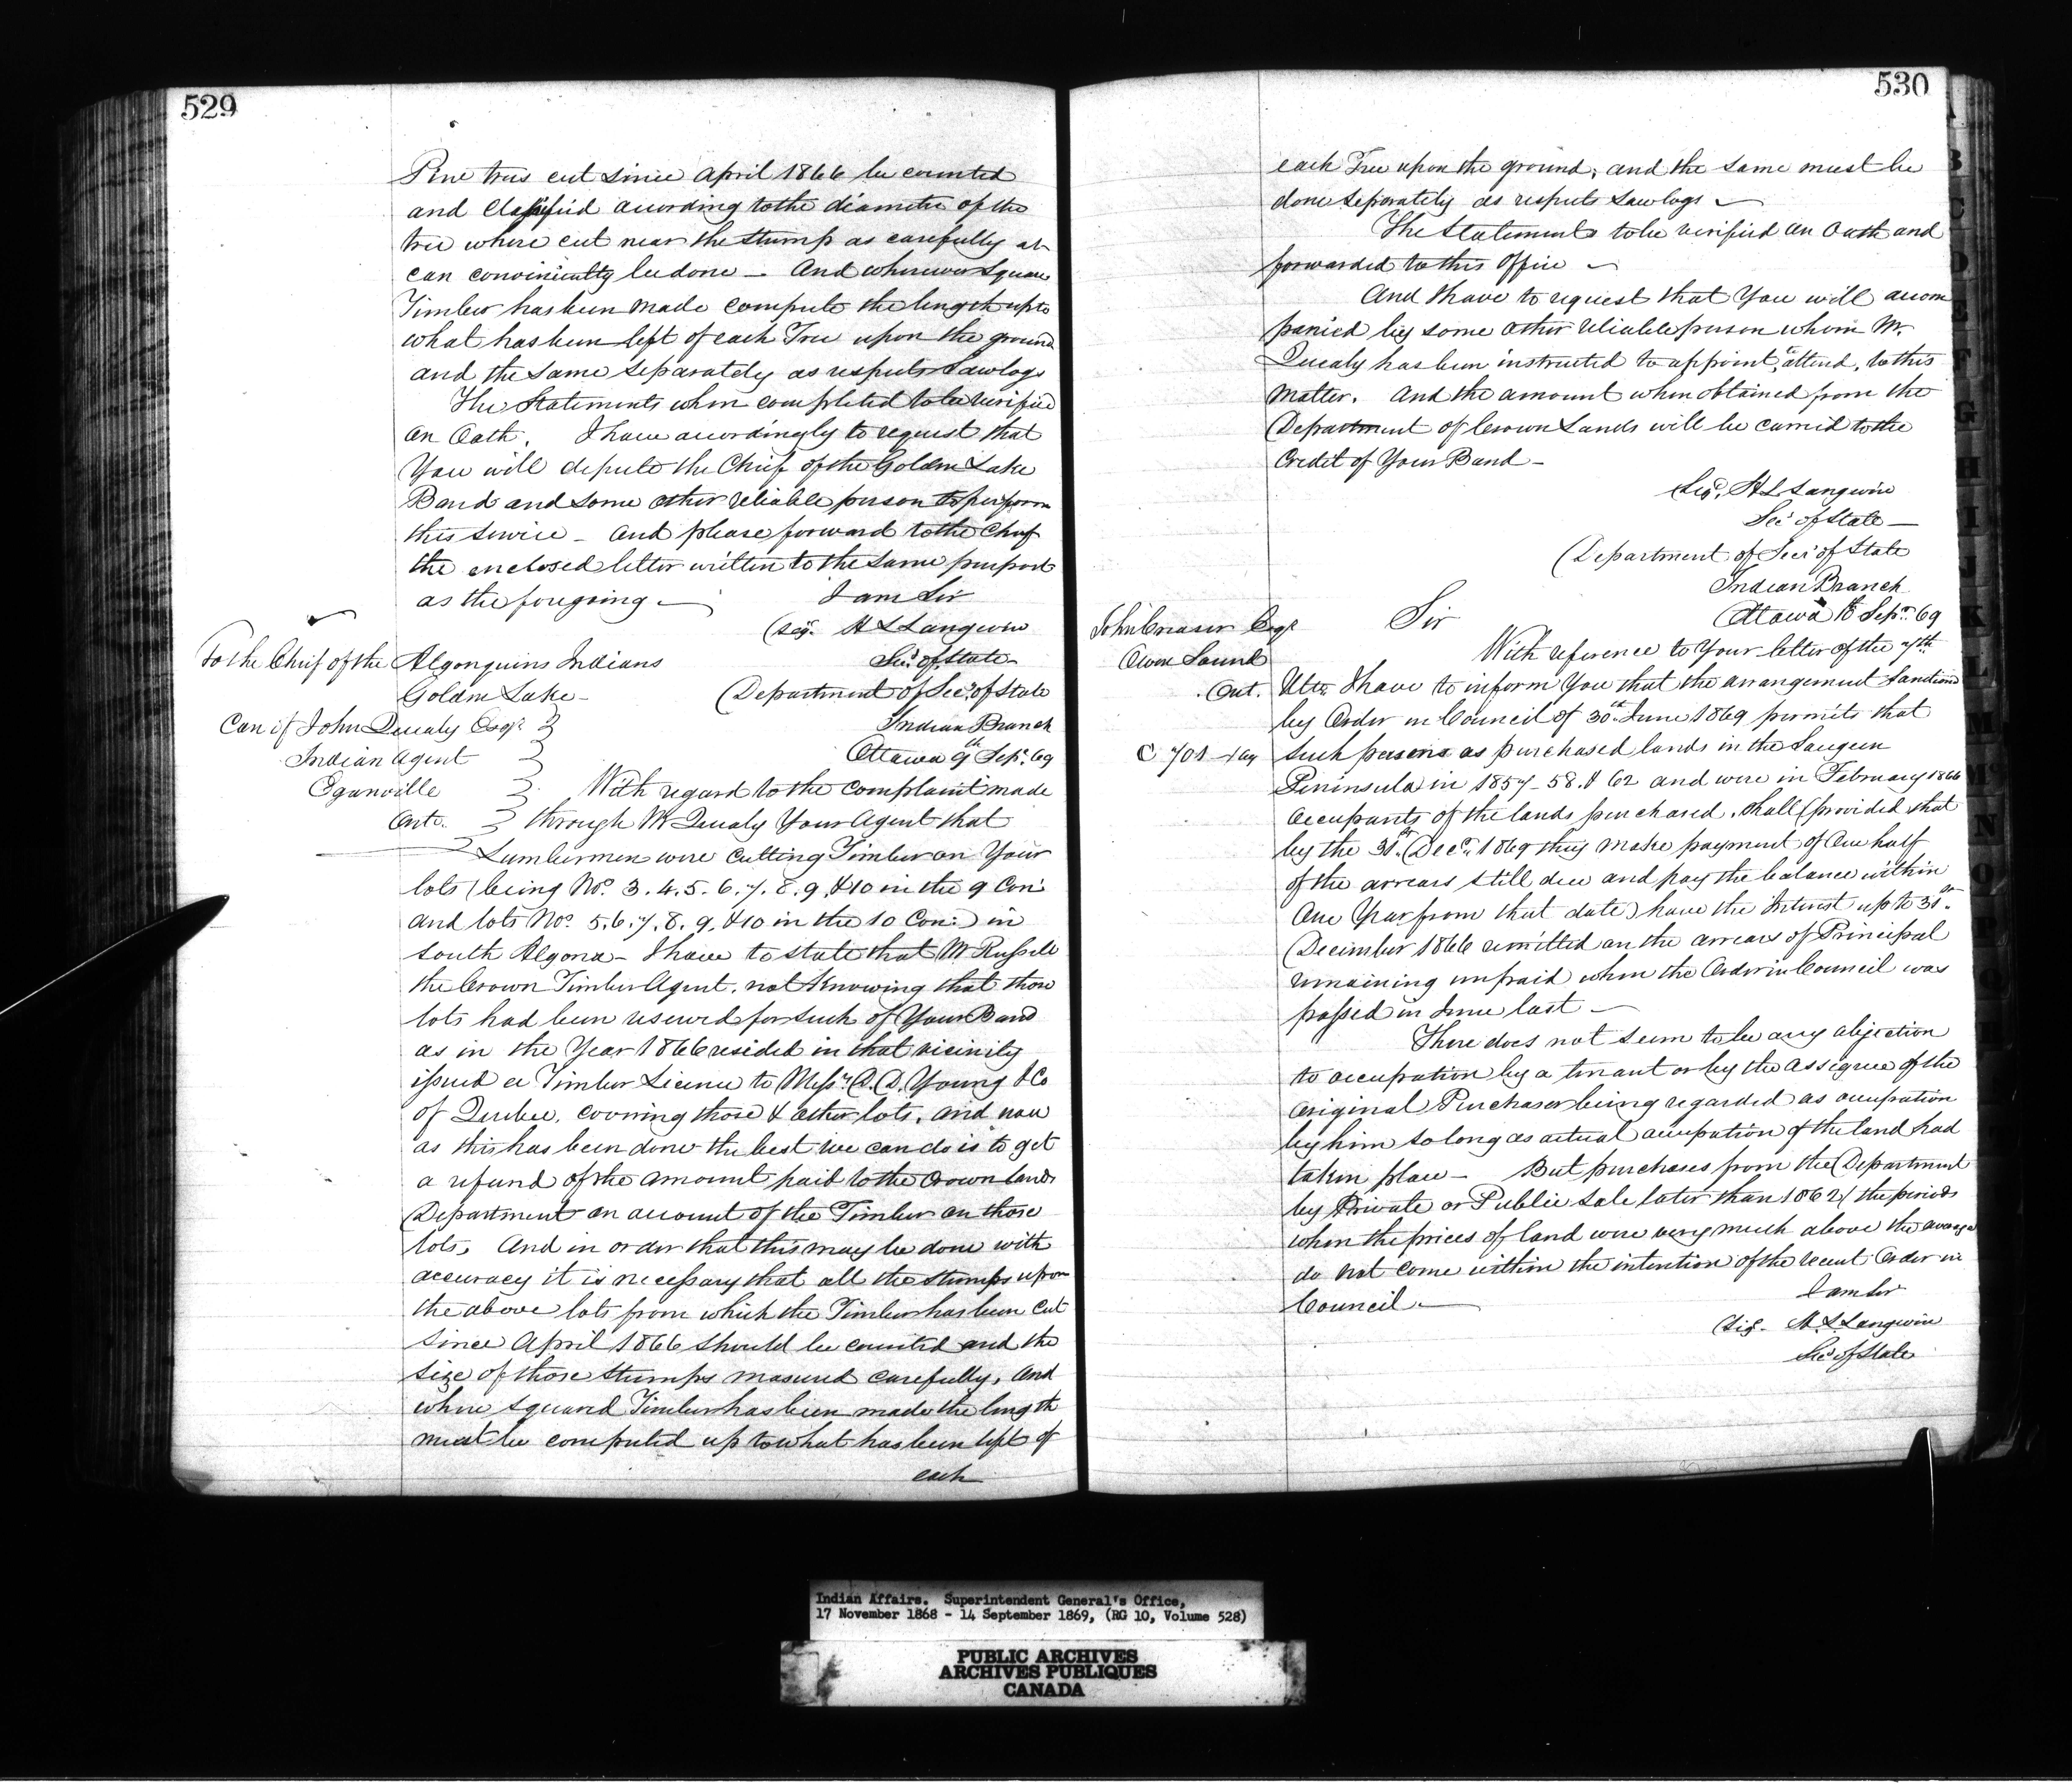 529
Pine trees cut since April 1866 be counted
and Classified according to the diameter of the
tree where cut near the stump as carefully as
can conveniently be done — And wherever Square
Timber has been made compute the length up to
what has been left of each Tree upon the ground
and the same separately as respects Sawlogs
The Statements when completed to be verified
on Oath. I have accordingly to request that
You will depute the Chief of the Golden Lake
Band and some other reliable person to perform
this service – And please forward to the Chief
the enclosed letter written to the same purport
as the foregoing — I am Sir
(Sig. H L Langevin
Sec. of State
To the Chief of the Algonquins Indians
Golden Lake –
(Department of Sec. of State
Indian Branch
Ottawa 9th Sepr. 69
Care of John Quealy Esqr.
Indian Agent
Eganville
Onto.
With regard to the complaint made
through Mr Quealy Your Agent that
Lumbermen were Cutting Timber on Your
lots (being Nos. 3. 4. 5. 6. 7. 8. 9. & 10 in the 9 Con:
and lots Nos. 5. 6. 7. 8. 9. & 10 in the 10 Con:) in
South Algona – I have to state that Mr Russell
the Crown Timber Agent, not Knowing that those
lots had been reserved for such of Your Band
as in the Year 1866 resided in that vicinity
issued a Timber License to Messrs. A. D. Young & Co
of Quebec, covering those & other lots, and now
as this has been done the best we can do is to get
a refund of the amount paid to the Crown lands
Department on account of the Timber on those
lots, And in order that this may be done with
accuracy it is necessary that all the stumps upon
the above lots from which the Timber has been Cut
since April 1866 should be counted and the
size of those Stumps measured carefully, And
where squared Timber has been made the length
must be computed up to what has been left of
each
530
each Tree upon the ground, and the same must be
done separately as respects sawlogs —
The Statements to be verified on Oath and
forwarded to this Office —
And I have to request that You will accom
panied by some other reliable person whom Mr.
Quealy has been instructed to appoint, to attend, to this
matter. And the amount when obtained from the
Department of Crown Lands will be carried to the
Credit of Your Band –
(Sigd. H L Langevin
Sec. of State —
(Department of Sec. of State
Indian Branch
Ottawa 10th Sepr. 69
John Creasor Esqr
Owen Sound
Ont.
C 701 – 
Sir
With reference to Your letter of the 7th
Ulto. I have to inform You that the arrangement Sanctioned
by Order in Council of 30th June 1869 permits that
such persons as purchased lands in the Saugeen
Peninsula in 1857 – 58. & 62 and were in February 1866
Occupants of the lands purchased, shall (provided that
by the 31st Decr. 1869 they make payment of One half
of the arrears still due and pay the balance within
One Year from that date) have the Interest up to 31st.
December 1866 remitted on the arrears of Principal
remaining unpaid when the Order in Council was
passed in June last —
There does not seem to be any objection
to occupation by a tenant or by the assignee of the
Original Purchaser being regarded as occupation
by him so long as actual occupation of the land had
taken place – But purchases from the Department
by Private or Public Sale later than 1862 (the periods
when the prices of land were very much above the average
do not come within the intention of the recent Order in
Council — I am Sir
(Sig. H. L Langevin
Sec. of State
Indian Affairs. Superintendent General's Office,
17 November 1868 - 14 September 1869, (RG 10, Volume 528)
PUBLIC ARCHIVES
ARCHIVES PUBLIQUES
CANADA